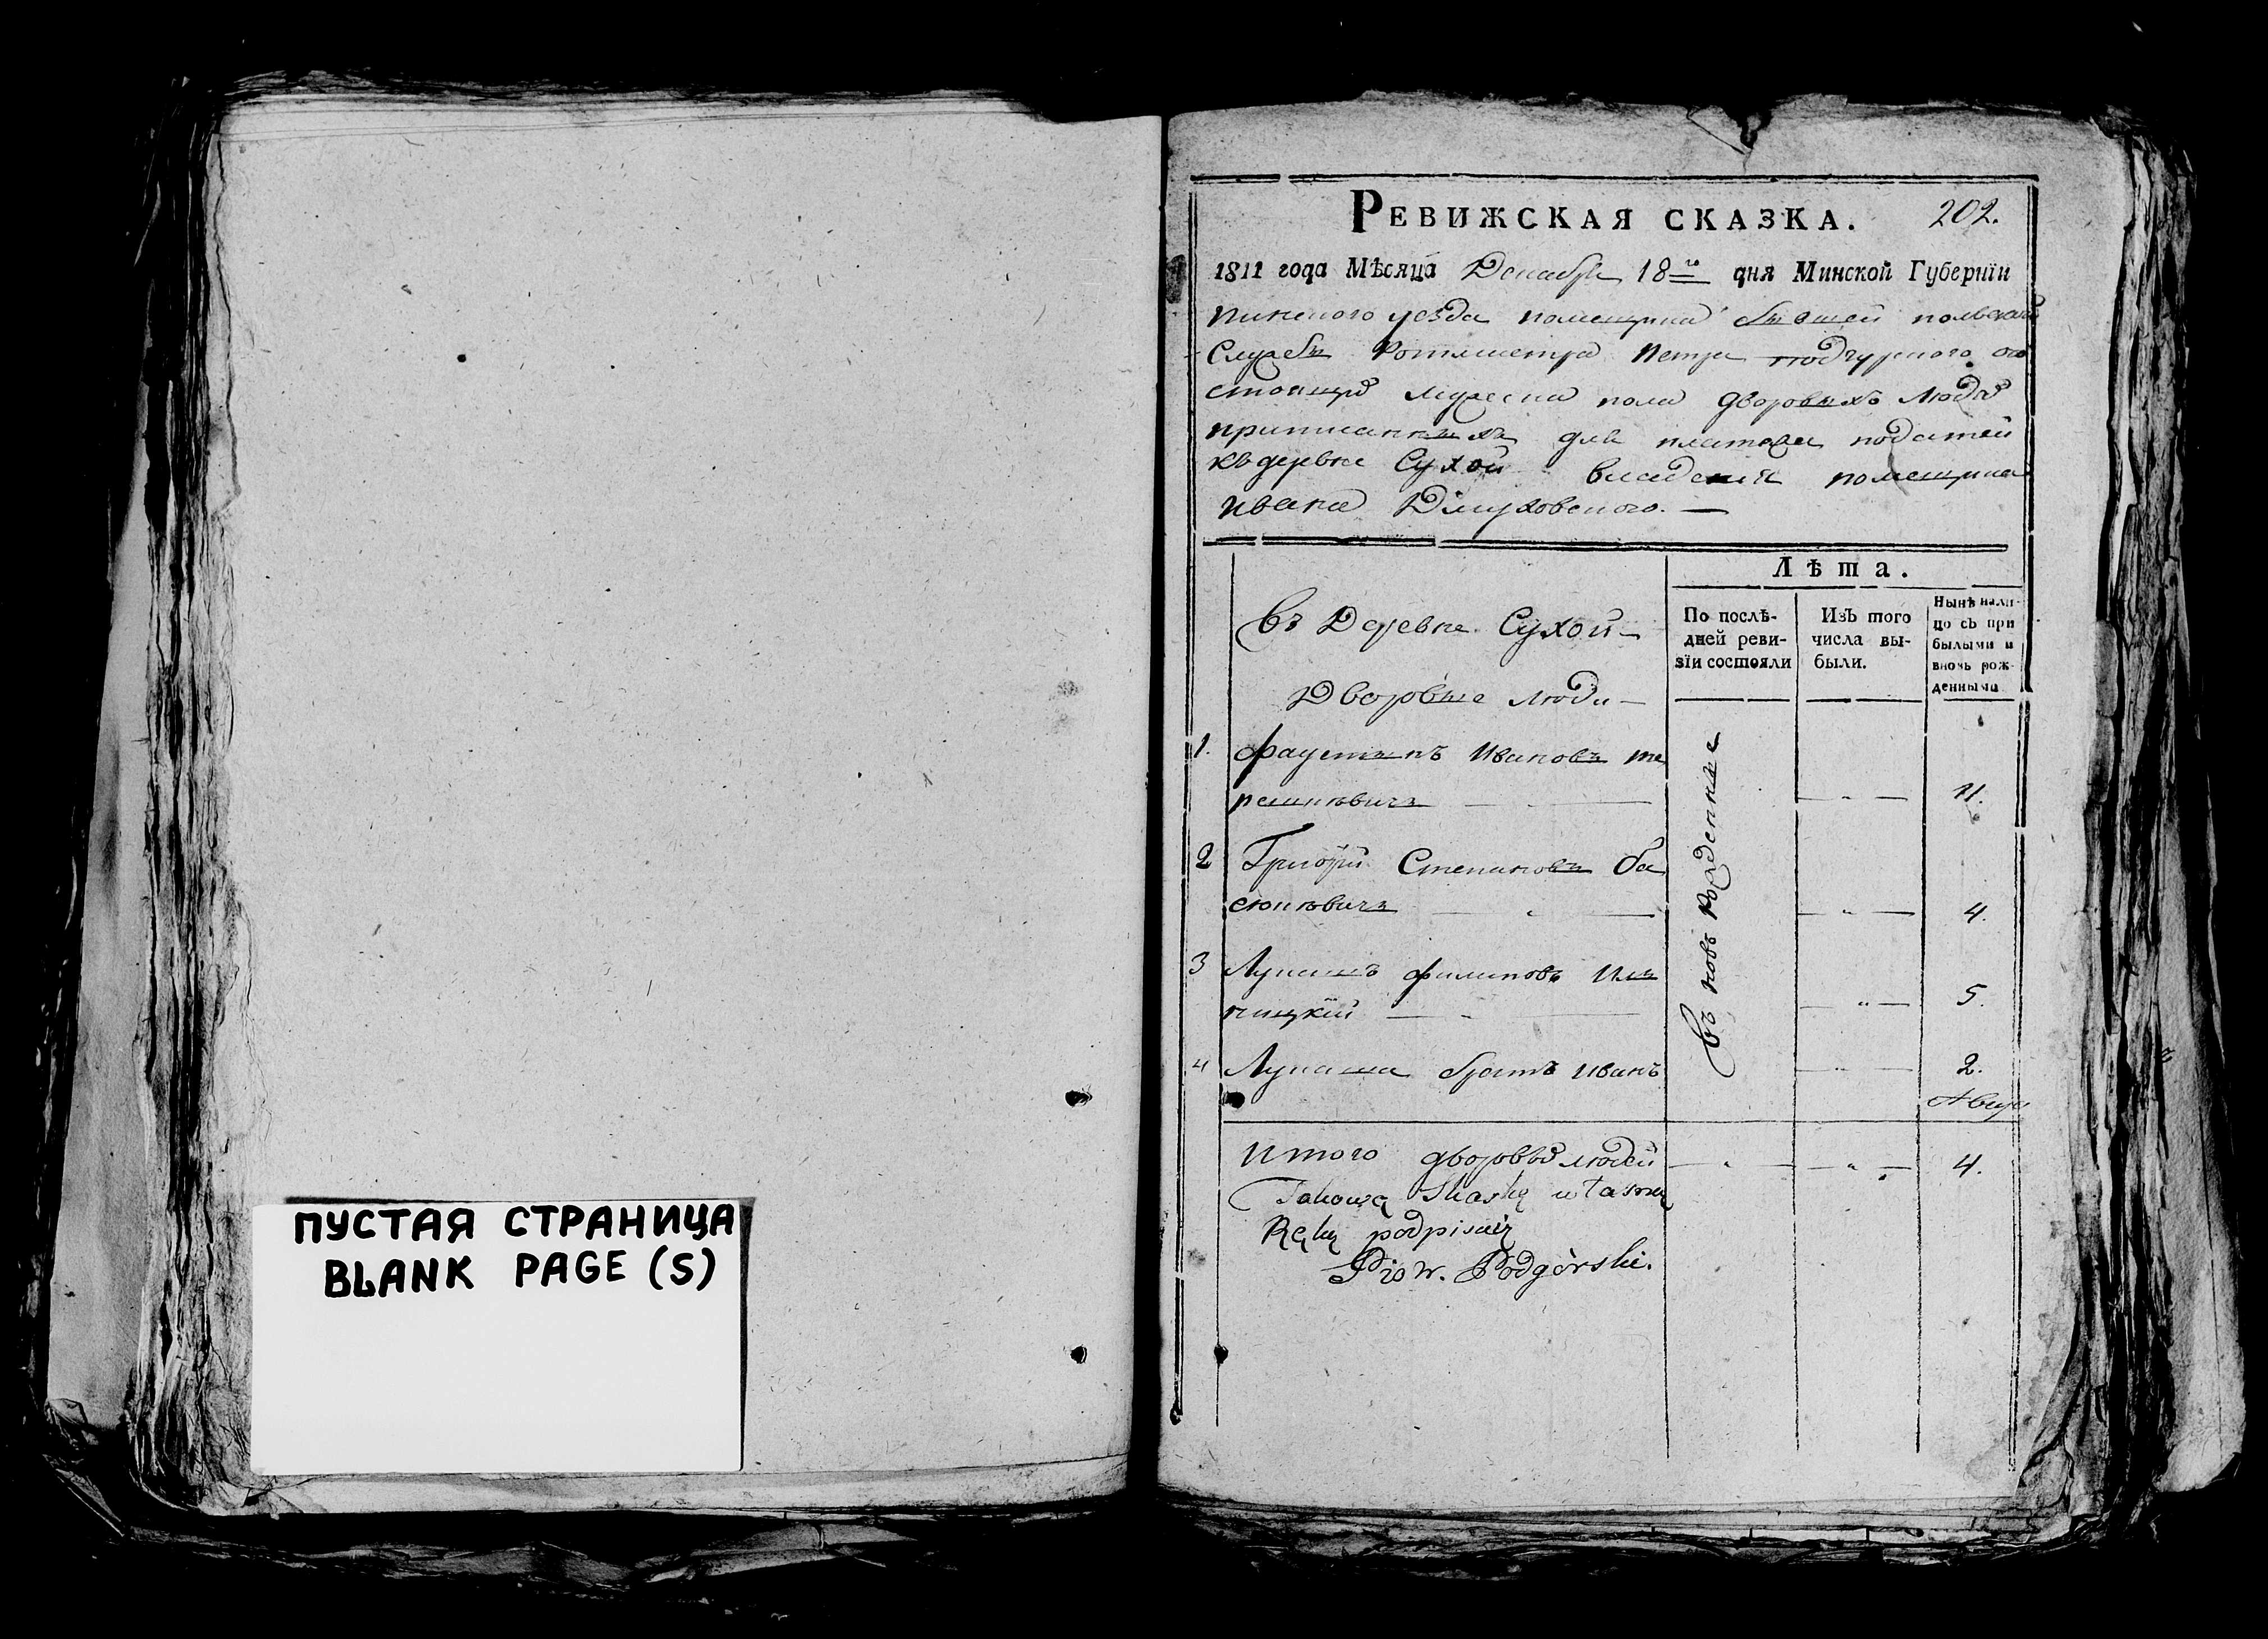 ПУСТАЯ СТРАНИЦА
BLANK PAGE (S)
РЕВИЖСКАЯ СКАЗКА. 202.
1811 года Мѣсяца Декабря 18го дня Минской Губернїи
Пинского уезда помещика бывшей польской
Службы Ротмистра Петра Подгурского о со
стоящихъ мужеска пола дворовыхъ людяхъ
приписанныхъ для платежа податей
къ деревне Сухой владения помещика
Ивана Длуховского. —
Лѣта.
По послѣ-
дней реви-
зїи состояли
ИзЪ того
числа вы-
были.
Нынѣ нали-
цо сЪ при
былыми и
вновь рож-
денными
Въ Деревне Сухой —
Дворовые люди —
1. Фаустынъ Ивановъ те
решкѣвичъ — „ — 11.
2 Григорїй Степановъ ба
сюкѣвичъ — „ — 4.
3 Лукашъ Филиповъ
— „ — 5.
4 Лукаша братъ Иванъ — „ — 2.
Въ новъ Рожденные
Итого дворовыхъ людей — „ — — „ — 4.
Takową Skaskę własną
Ręką podpisuię
Piotr. Podgórski.